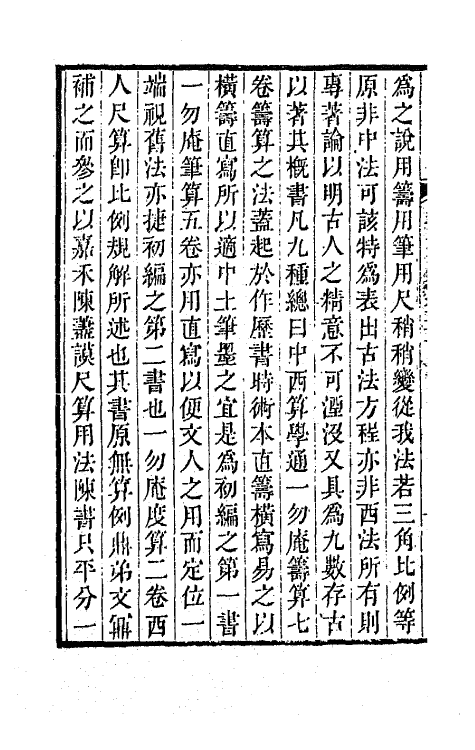 爲之說用籌用筆用尺稍稍變從我法若三角比例等
原非中法可該特爲表出古法方程亦非西法所有則
專著論以明古人之精意不可湮沒又具爲九數存古
以著其槪書凡九種總曰中西算學通一勿庵籌算七
卷籌算之法蓋起於作歷書時術本直籌橫寫易之以
橫籌直寫所以適中土筆墨之宜是爲初編之第一書
一勿庵筆算五卷亦用直寫以便文人之用而定位一
端視舊法亦捷初編之第二書也一勿庵度算二卷西
人尺算卽比例規解所述也其書原無算例鼎弟文鼐
補之而參之以嘉禾陳藎謨尺算用法陳書只平分一